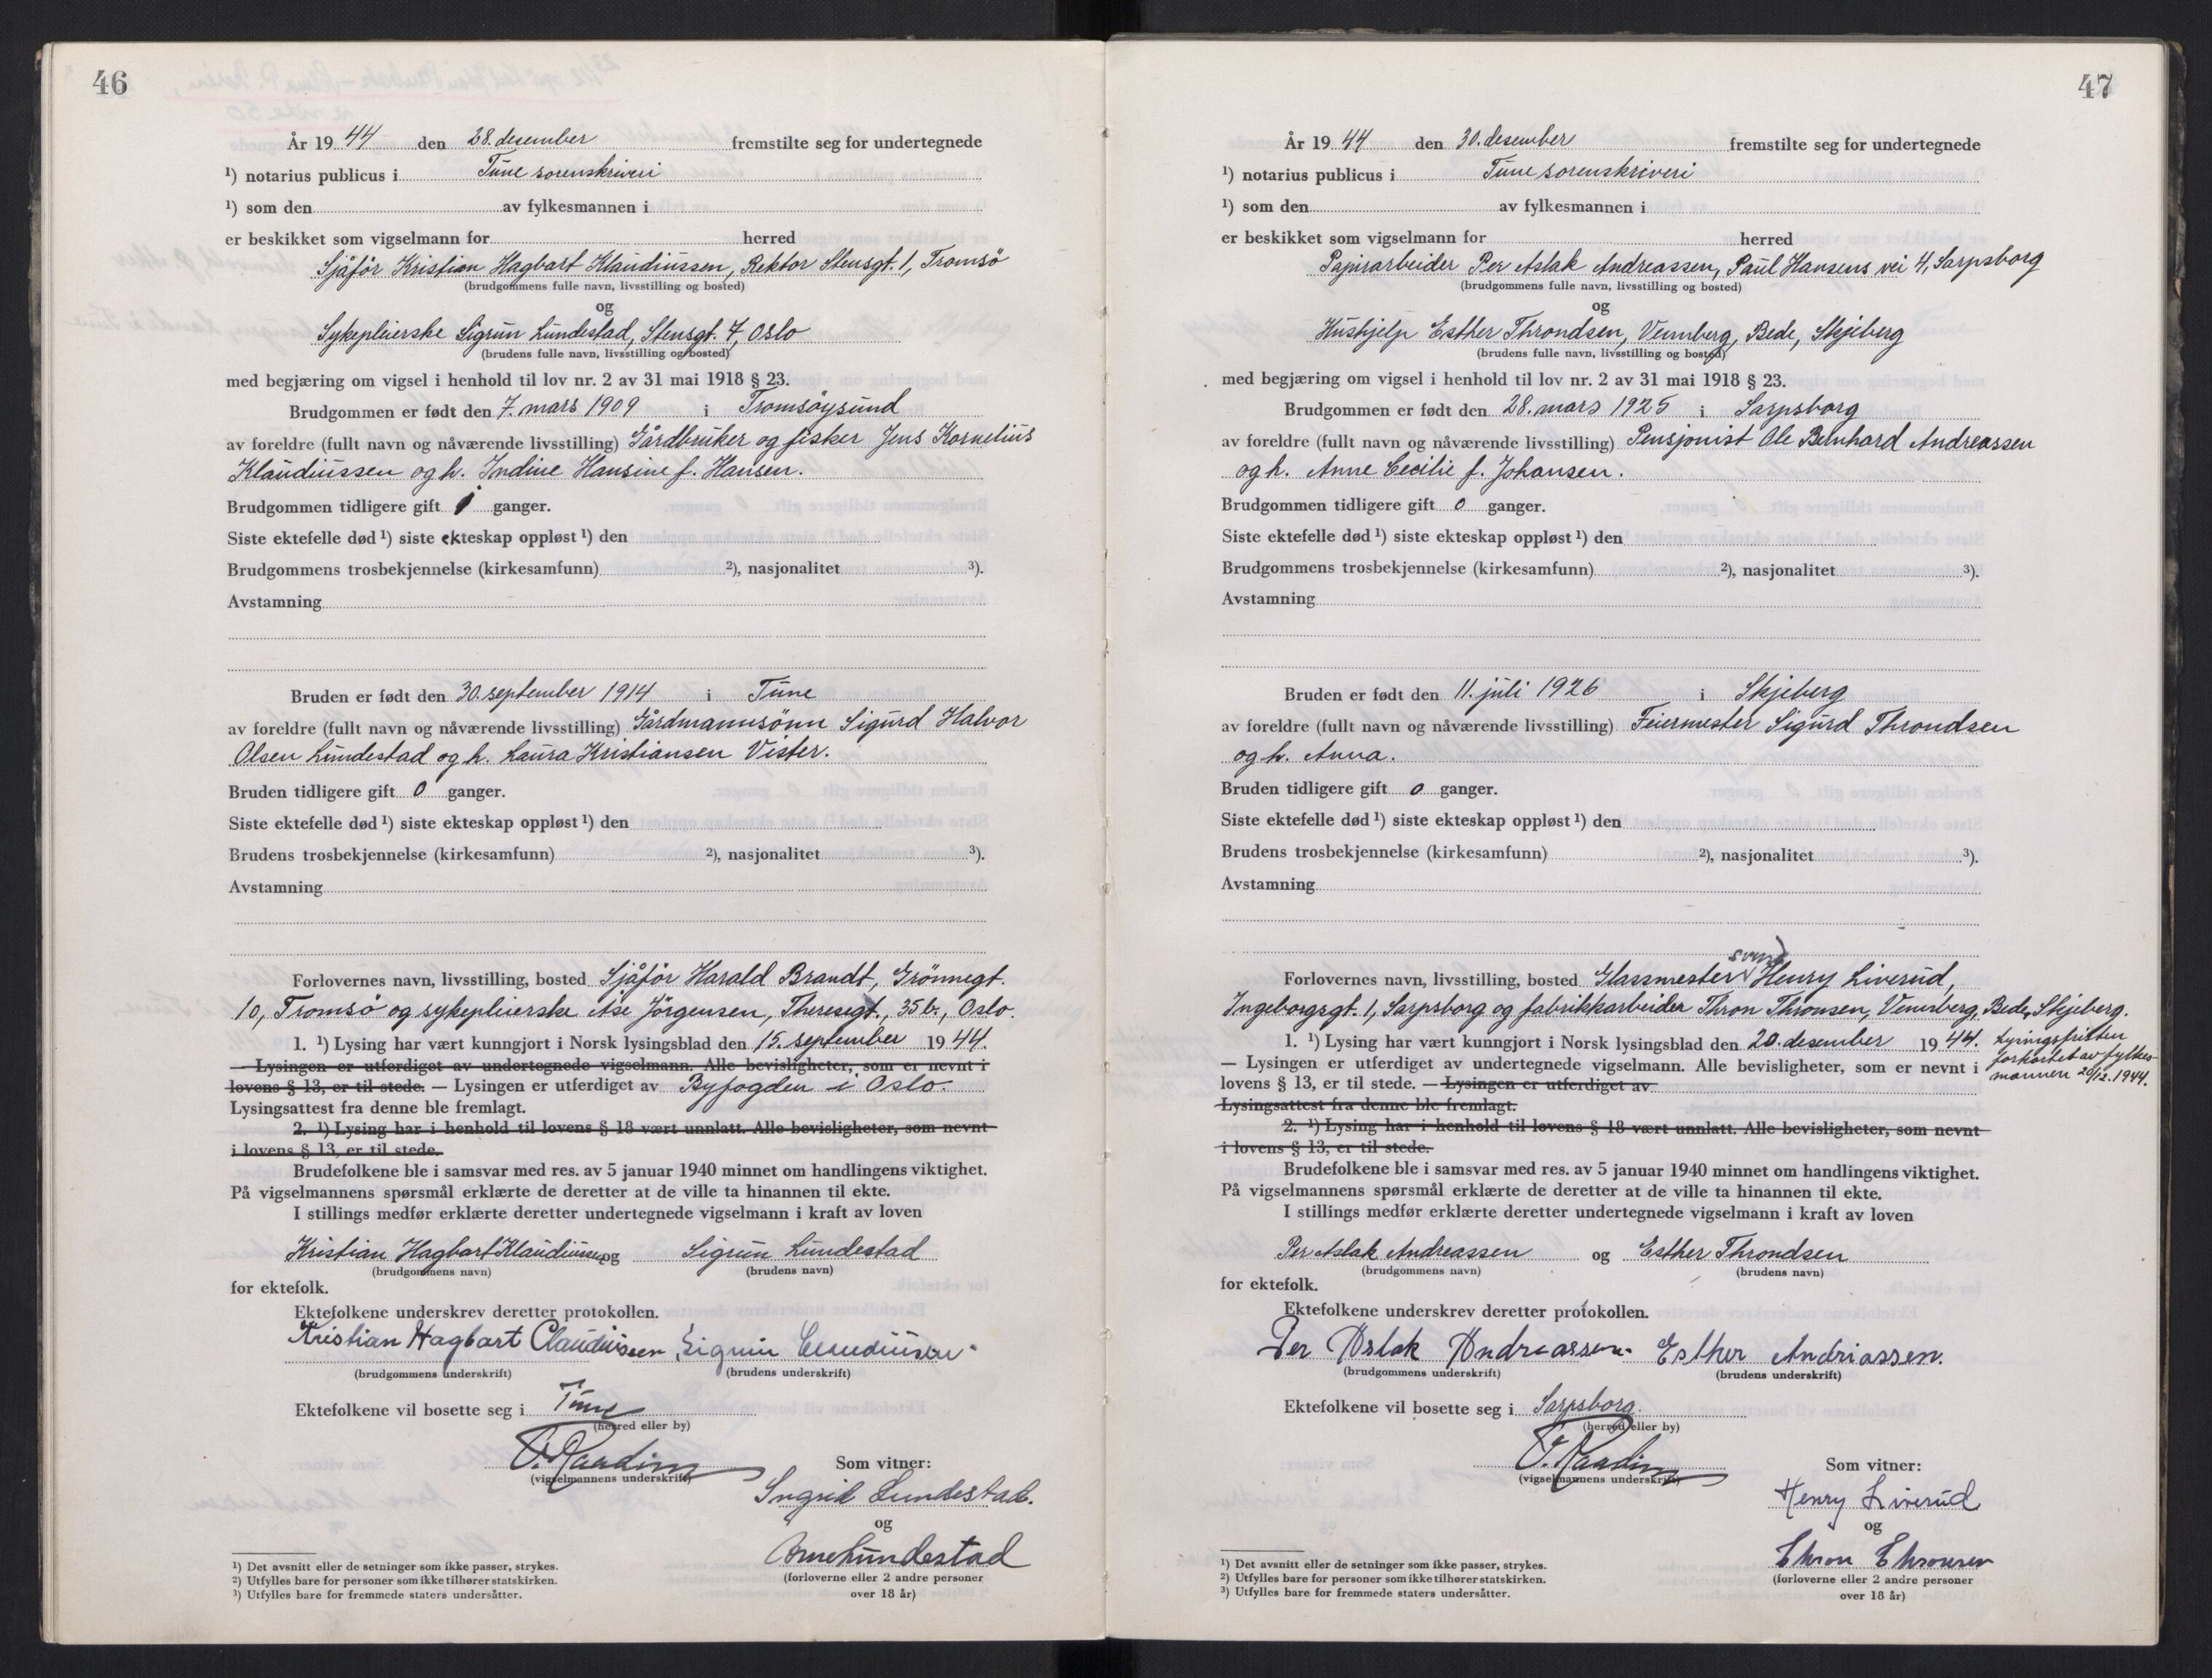 46
År 1944 den 28. desember fremstilte seg for undertegnede
¹) notarius publicus i Tune sorenskriveri
¹) som den av fylkesmannen i
er beskikket som vigselmann for herred
Sjåför Kristian Hagbart Klaudiussen, Rektor Stensgt. 1, Tromsö
(brudgommens fulle navn, livsstilling og bosted)
og
Sykepleierske Sigrun Lundestad, Stensgt. 7, Oslo
(brudens fulle navn, livsstilling og bosted)
med begjæring om vigsel i henhold til lov nr. 2 av 31 mai 1918 § 23.
Brudgommen er født den 7. mars 1909 i Tromsöysund
av foreldre (fullt navn og nåværende livsstilling) Gårdbruker og fisker Jens Kornelius
Klaudiussen og h. Indine Hansine f. Hansen.
Brudgommen tidligere gift ganger.
Siste ektefelle død ¹) siste ekteskap oppløst ¹) den
Brudgommens trosbekjennelse (kirkesamfunn) ²), nasjonalitet ³).
Avstamning
Bruden er født den 30. september 1914 i Tune
av foreldre (fullt navn og nåværende livsstilling) Gårdmannsönn Sigurd Halvor
Olsen Lundestad og h. Laura Kristiansen Vister.
Bruden tidligere gift 0 ganger.
Siste ektefelle død ¹) siste ekteskap oppløst ¹) den
Brudens trosbekjennelse (kirkesamfunn) ²), nasjonalitet ³).
Avstamning
Forlovernes navn, livsstilling, bosted Sjåför Harald Brandt, Grönnegt.
10, Tromsö og sykepleierske Åse Jörgensen, Theresegt., 35 b., Oslo.
1. ¹) Lysing har vært kunngjort i Norsk lysingsblad den 15. september 1944.
— Lysingen er utferdiget av undertegnede vigselmann. Alle bevisligheter, som er nevnt i
lovens § 13, er til stede. — Lysingen er utferdiget av Byfogden i Oslo.
Lysingsattest fra denne ble fremlagt.
2. ¹) Lysing har i henhold til lovens § 18 vært unnlatt. Alle bevisligheter, som nevnt
i lovens § 13, er til stede.
Brudefolkene ble i samsvar med res. av 5 januar 1940 minnet om handlingens viktighet.
På vigselmannens spørsmål erklærte de deretter at de ville ta hinannen til ekte.
I stillings medfør erklærte deretter undertegnede vigselmann i kraft av loven
Kristian Hagbart Klaudiussen og Sigrun Lundestad
(brudgommens navn) (brudens navn)
for ektefolk.
Ektefolkene underskrev deretter protokollen.
Kristian Hagbart Claudiussen Sigrun Claudiussen
(brudgommens underskrift) (brudens underskrift)
Ektefolkene vil bosette seg i Tune
(herred eller by)
(vigselmannens underskrift)
Som vitner:
Ingrid Lundestad.
og
Arne Lundestad
(forloverne eller 2 andre personer
over 18 år)
¹) Det avsnitt eller de setninger som ikke passer, strykes.
²) Utfylles bare for personer som ikke tilhører statskirken.
³) Utfylles bare for fremmede staters undersåtter.
47
År 1944 den 30. desember fremstilte seg for undertegnede
¹) notarius publicus i Tune sorenskriveri
¹) som den av fylkesmannen i
er beskikket som vigselmann for herred
Papirarbeider Per Aslak Andreassen, Paul Hansens vei 4, Sarpsborg
(brudgommens fulle navn, livsstilling og bosted)
og
Hushjelp Esther Throndsen, Vennberg, Bede, Skjeberg
(brudens fulle navn, livsstilling og bosted)
med begjæring om vigsel i henhold til lov nr. 2 av 31 mai 1918 § 23.
Brudgommen er født den 28. mars 1925 i Sarpsborg
av foreldre (fullt navn og nåværende livsstilling) Pensjonist Ole Bernhard Andreassen
og h. Anne Cecilie f. Johansen.
Brudgommen tidligere gift 0 ganger.
Siste ektefelle død ¹) siste ekteskap oppløst ¹) den
Brudgommens trosbekjennelse (kirkesamfunn) ²), nasjonalitet ³).
Avstamning
Bruden er født den 11. juli 1926 i Skjeberg
av foreldre (fullt navn og nåværende livsstilling) Feiermester Sigurd Throndsen
og h. Anna.
Bruden tidligere gift 0 ganger.
Siste ektefelle død ¹) siste ekteskap oppløst ¹) den
Brudens trosbekjennelse (kirkesamfunn) ²), nasjonalitet ³).
Avstamning
svend
Forlovernes navn, livsstilling, bosted Glassmester Henry Liverud,
Ingeborgsgt. 1, Sarpsborg og fabrikkarbeider Thron Thronsen, Vennberg, Bede, Skjeberg.
1. ¹) Lysing har vært kunngjort i Norsk lysingsblad den 20. desember 1944. Lysingsfristen
forkortet av fylkes-
mannen 20/12.1944.
— Lysingen er utferdiget av undertegnede vigselmann. Alle bevisligheter, som er nevnt i
lovens § 13, er til stede. — Lysingen er utferdiget av
Lysingsattest fra denne ble fremlagt.
2. ¹) Lysing har i henhold til lovens § 18 vært unnlatt. Alle bevisligheter, som nevnt
i lovens § 13, er til stede.
Brudefolkene ble i samsvar med res. av 5 januar 1940 minnet om handlingens viktighet.
På vigselmannens spørsmål erklærte de deretter at de ville ta hinannen til ekte.
I stillings medfør erklærte deretter undertegnede vigselmann i kraft av loven
Per Aslak Andreassen og Esther Throndsen
(brudgommens navn) (brudens navn)
for ektefolk.
Ektefolkene underskrev deretter protokollen.
Per Aslak Andreassen. Esther Andriassen.
(brudgommens underskrift) (brudens underskrift)
Ektefolkene vil bosette seg i Sarpsborg.
(herred eller by)
(vigselmannens underskrift)
Som vitner:
Henry Liverud
og
Thron Thronsen
(forloverne eller 2 andre personer
over 18 år)
¹) Det avsnitt eller de setninger som ikke passer, strykes.
²) Utfylles bare for personer som ikke tilhører statskirken.
³) Utfylles bare for fremmede staters undersåtter.